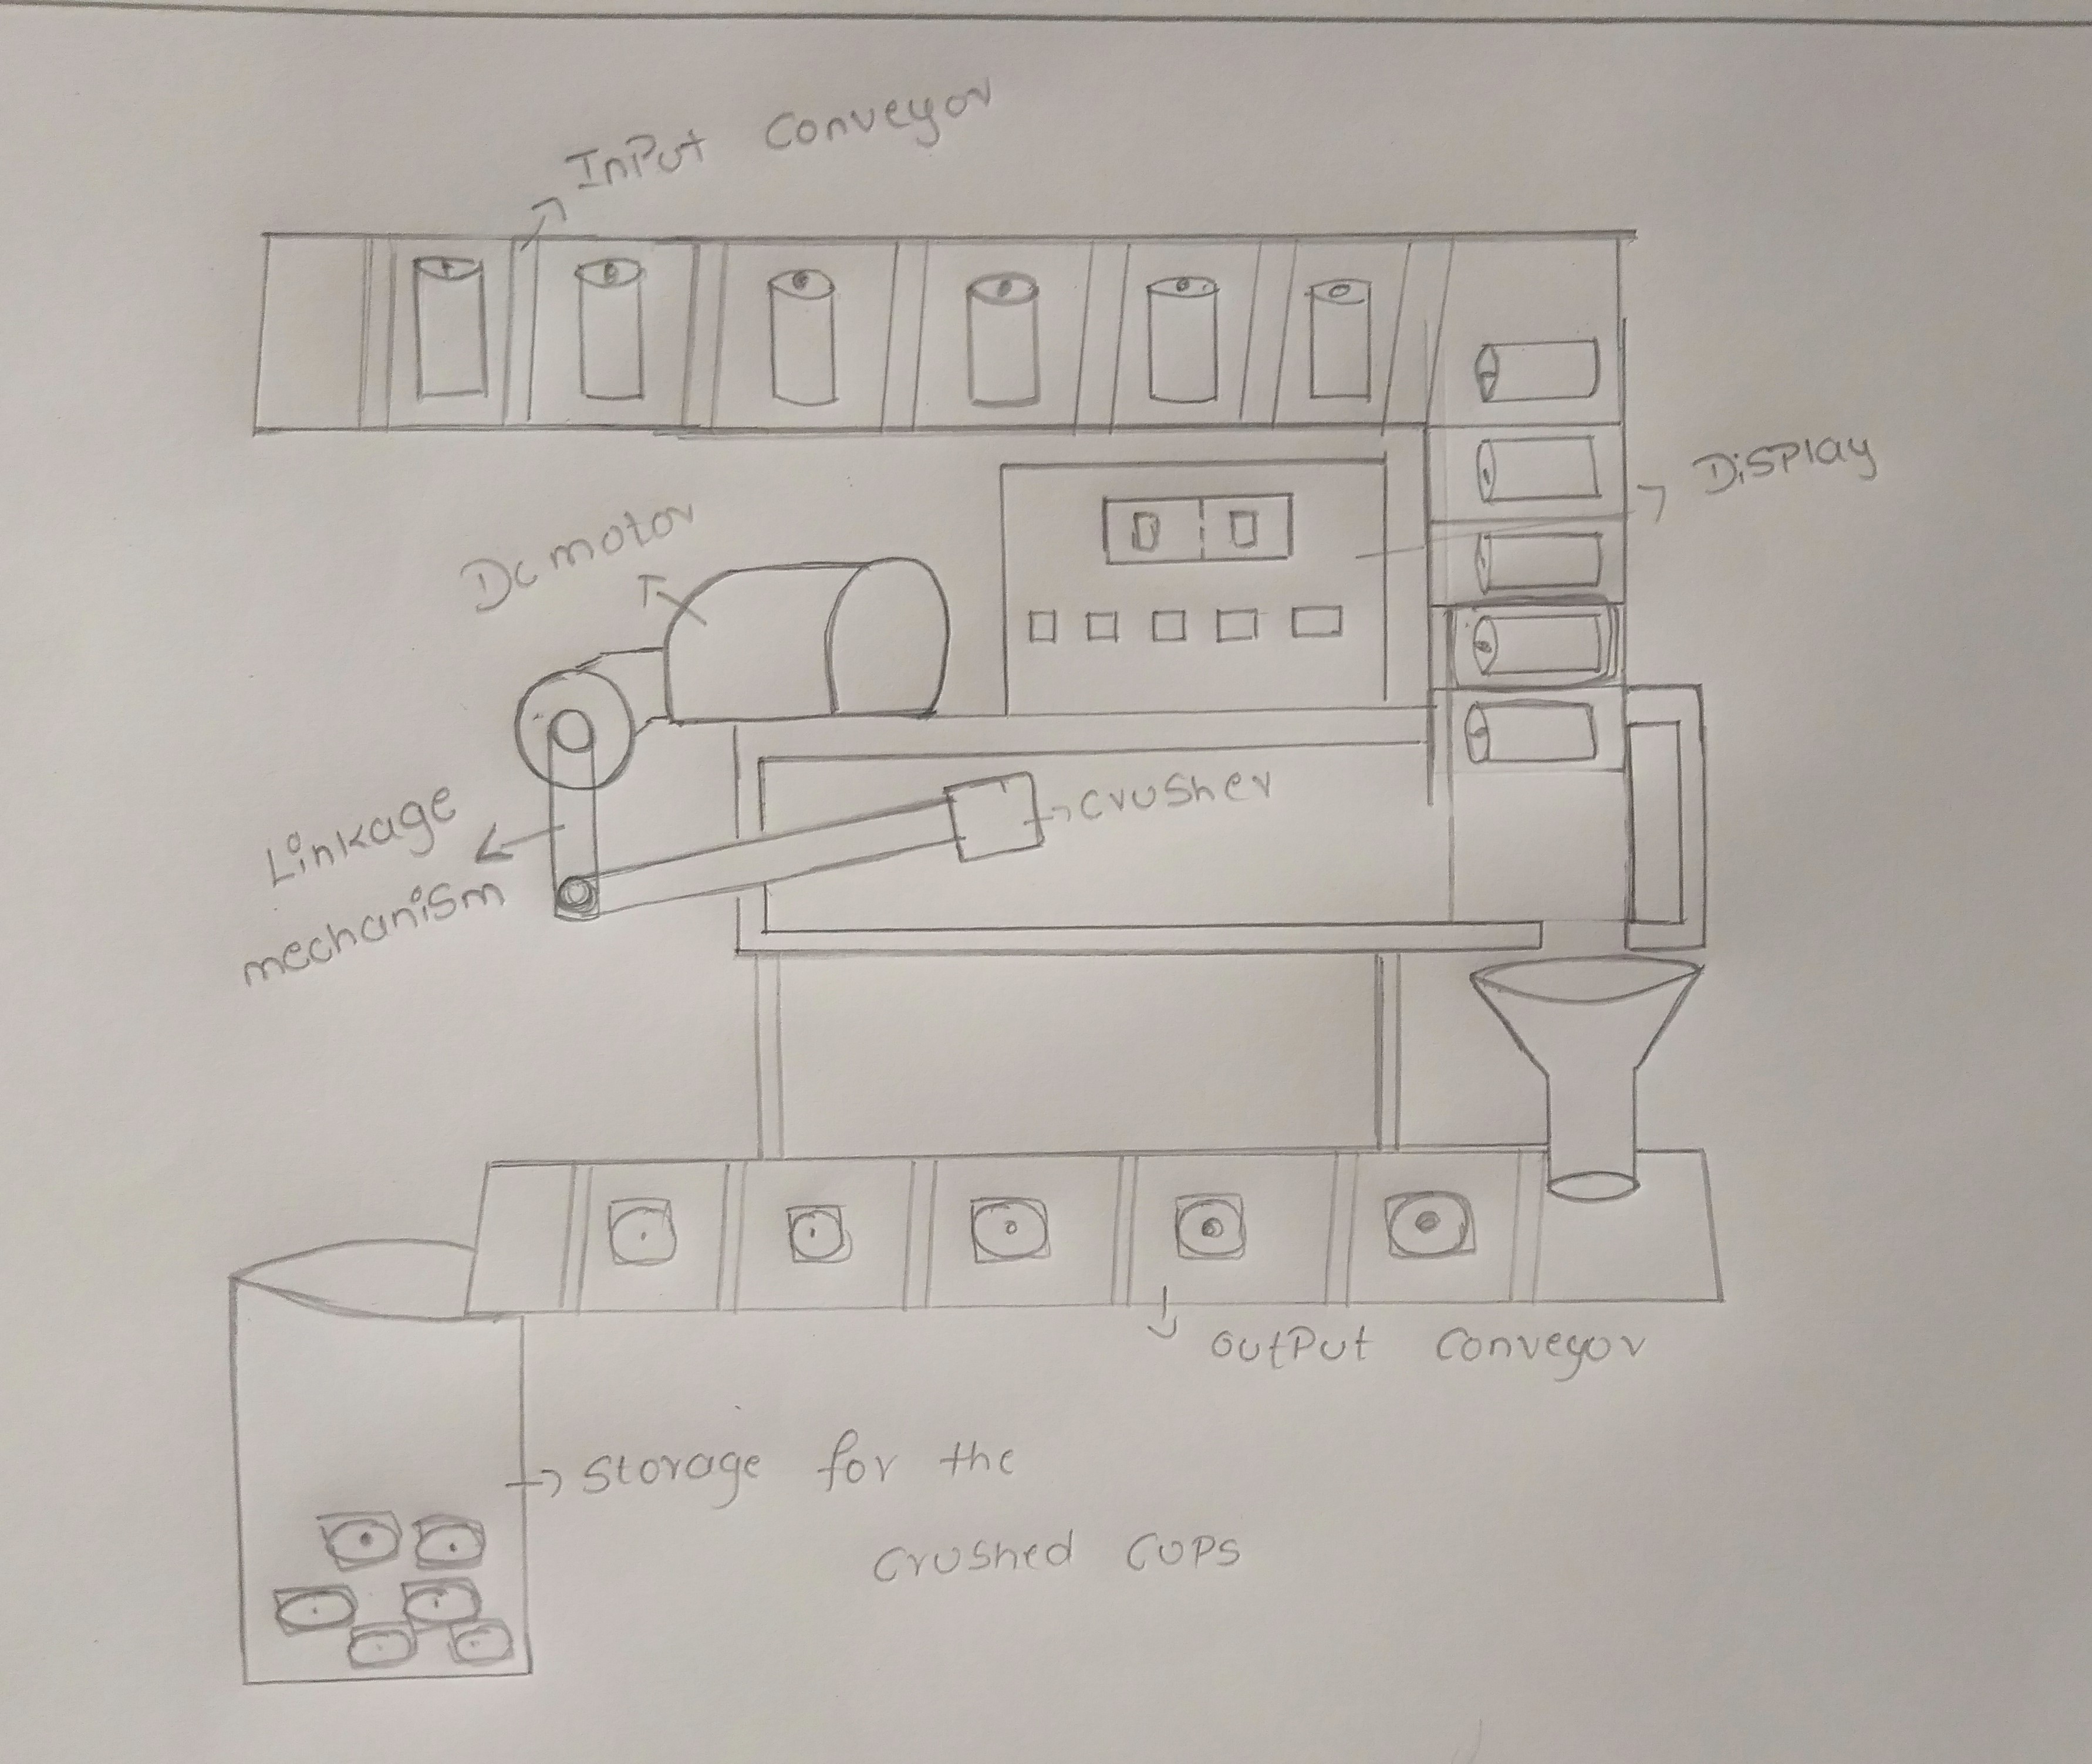 InPut Conveyor
DiSPlay
Dc motor
crusher
Linkage
mechaniSm
outPut Conveyor
Storage for the
Crushed CUPS